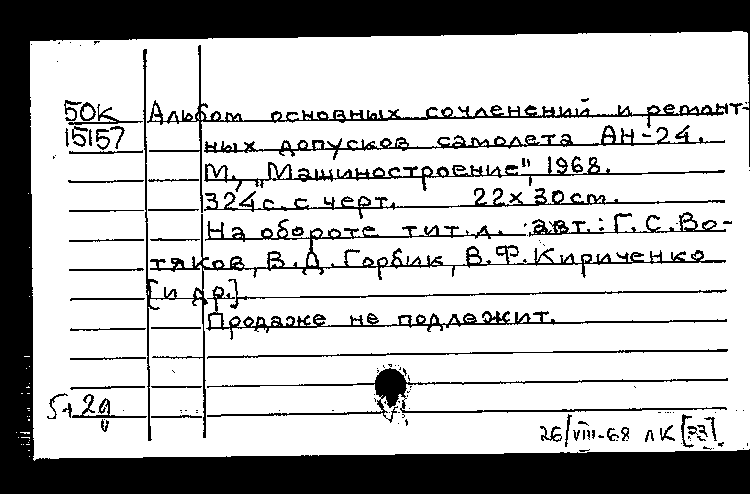 50К
15157
Альбом основных сочленений и ремонт-
ных допусков самолета АН-24.
М., „Машиностроение", 1968.
324 с. с черт. 22х30 cm.
На обороте тит. л. авт.: Г. С. Во-
тяков, В. Д. Горбик, В. Ф. Кириченко
[и др.].
Продаже не подлежит.
26/VIII-68 лК